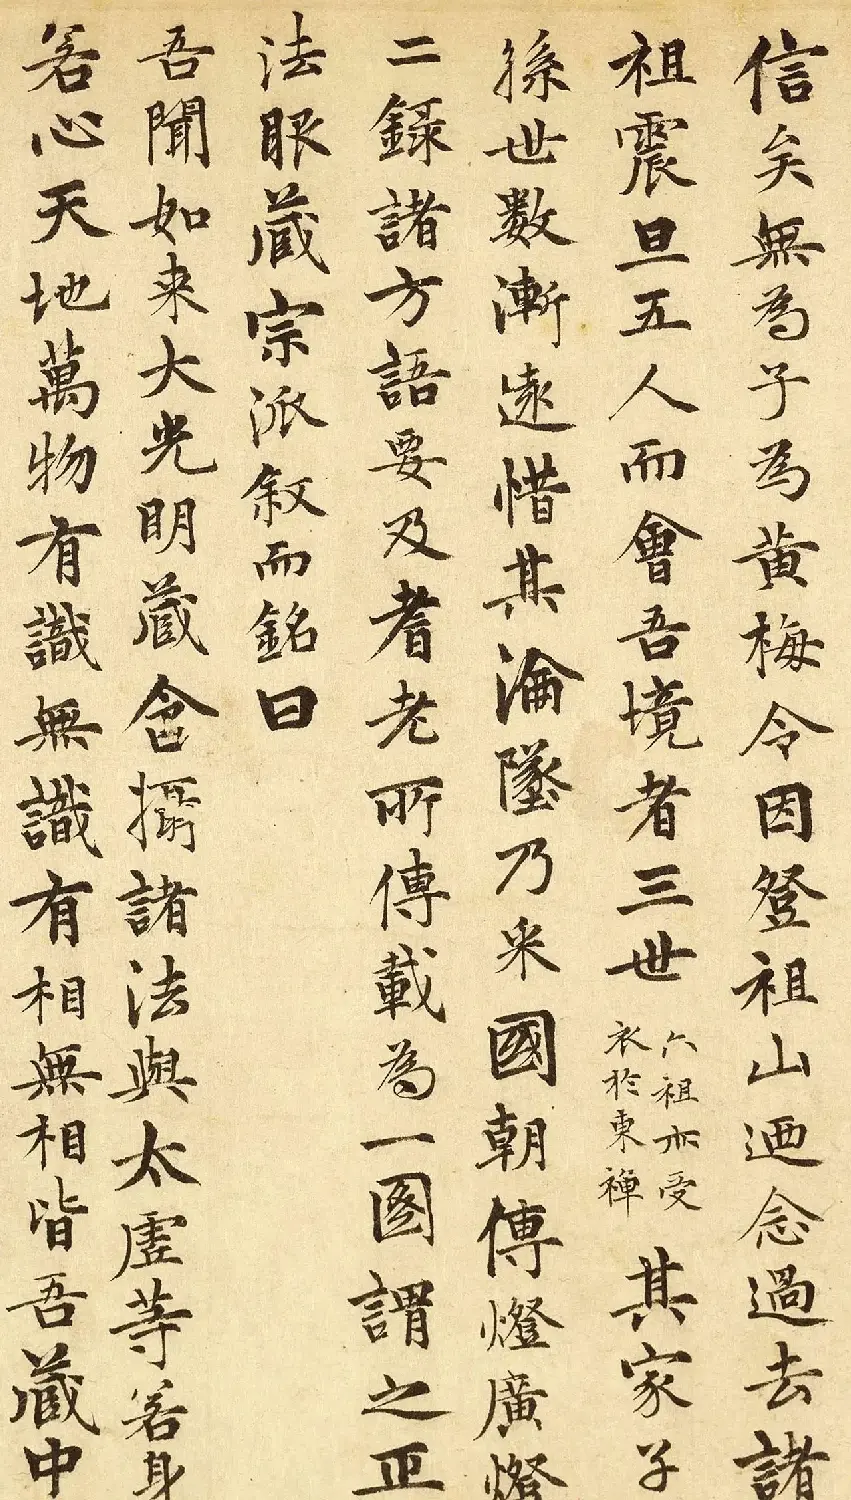 信矣無為子為黄梅令因登祖山迺念過去諸
祖震旦五人而會吾境者三世
六祖亦受
衣於東禅
其家子
孫世数漸遠惜其淪墜乃采國朝傳燈廣燈
二録諸方語要及耆老所傳載為一圖謂之正
法眼蔵宗派叙而銘曰
吾聞如来大光明蔵含攝諸法與太虚等若身
若心天地萬物有識無識有相無相皆吾蔵中